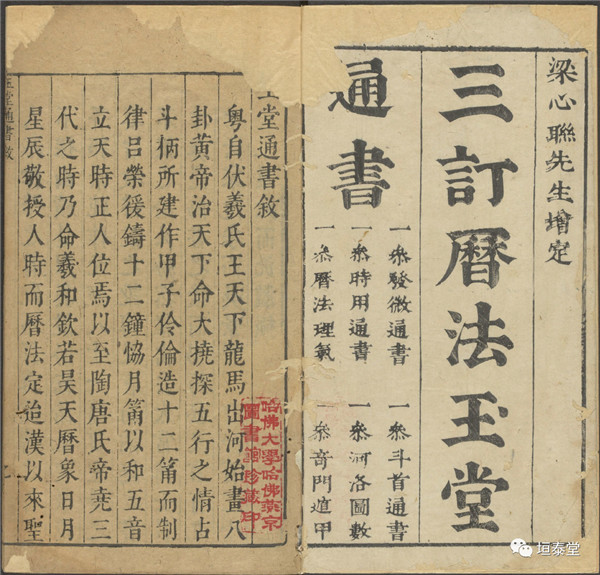 梁心聯先生增定
三訂曆法玉堂
通書
一叅發微通書
一叅時用通書
一叅曆法理氣
一叅斗首通書
一叅河洛圖數
一叅奇門遁甲
玉堂通書敘
粵自伏羲氏王天下龍馬出河始畫八
卦黃帝治天下命大撓探五行之情占
斗柄所建作甲子伶倫造十二筩而制
律呂榮猨鑄十二鐘恊月筩以和五音
立天時正人位焉以至陶唐氏帝堯三
代之時乃命羲和欽若昊天曆象日月
星辰敬授人時而曆法定迨漢以來聖
玉堂通書敘
哈佛大學哈佛燕京
圖書館珍藏印
垣泰堂